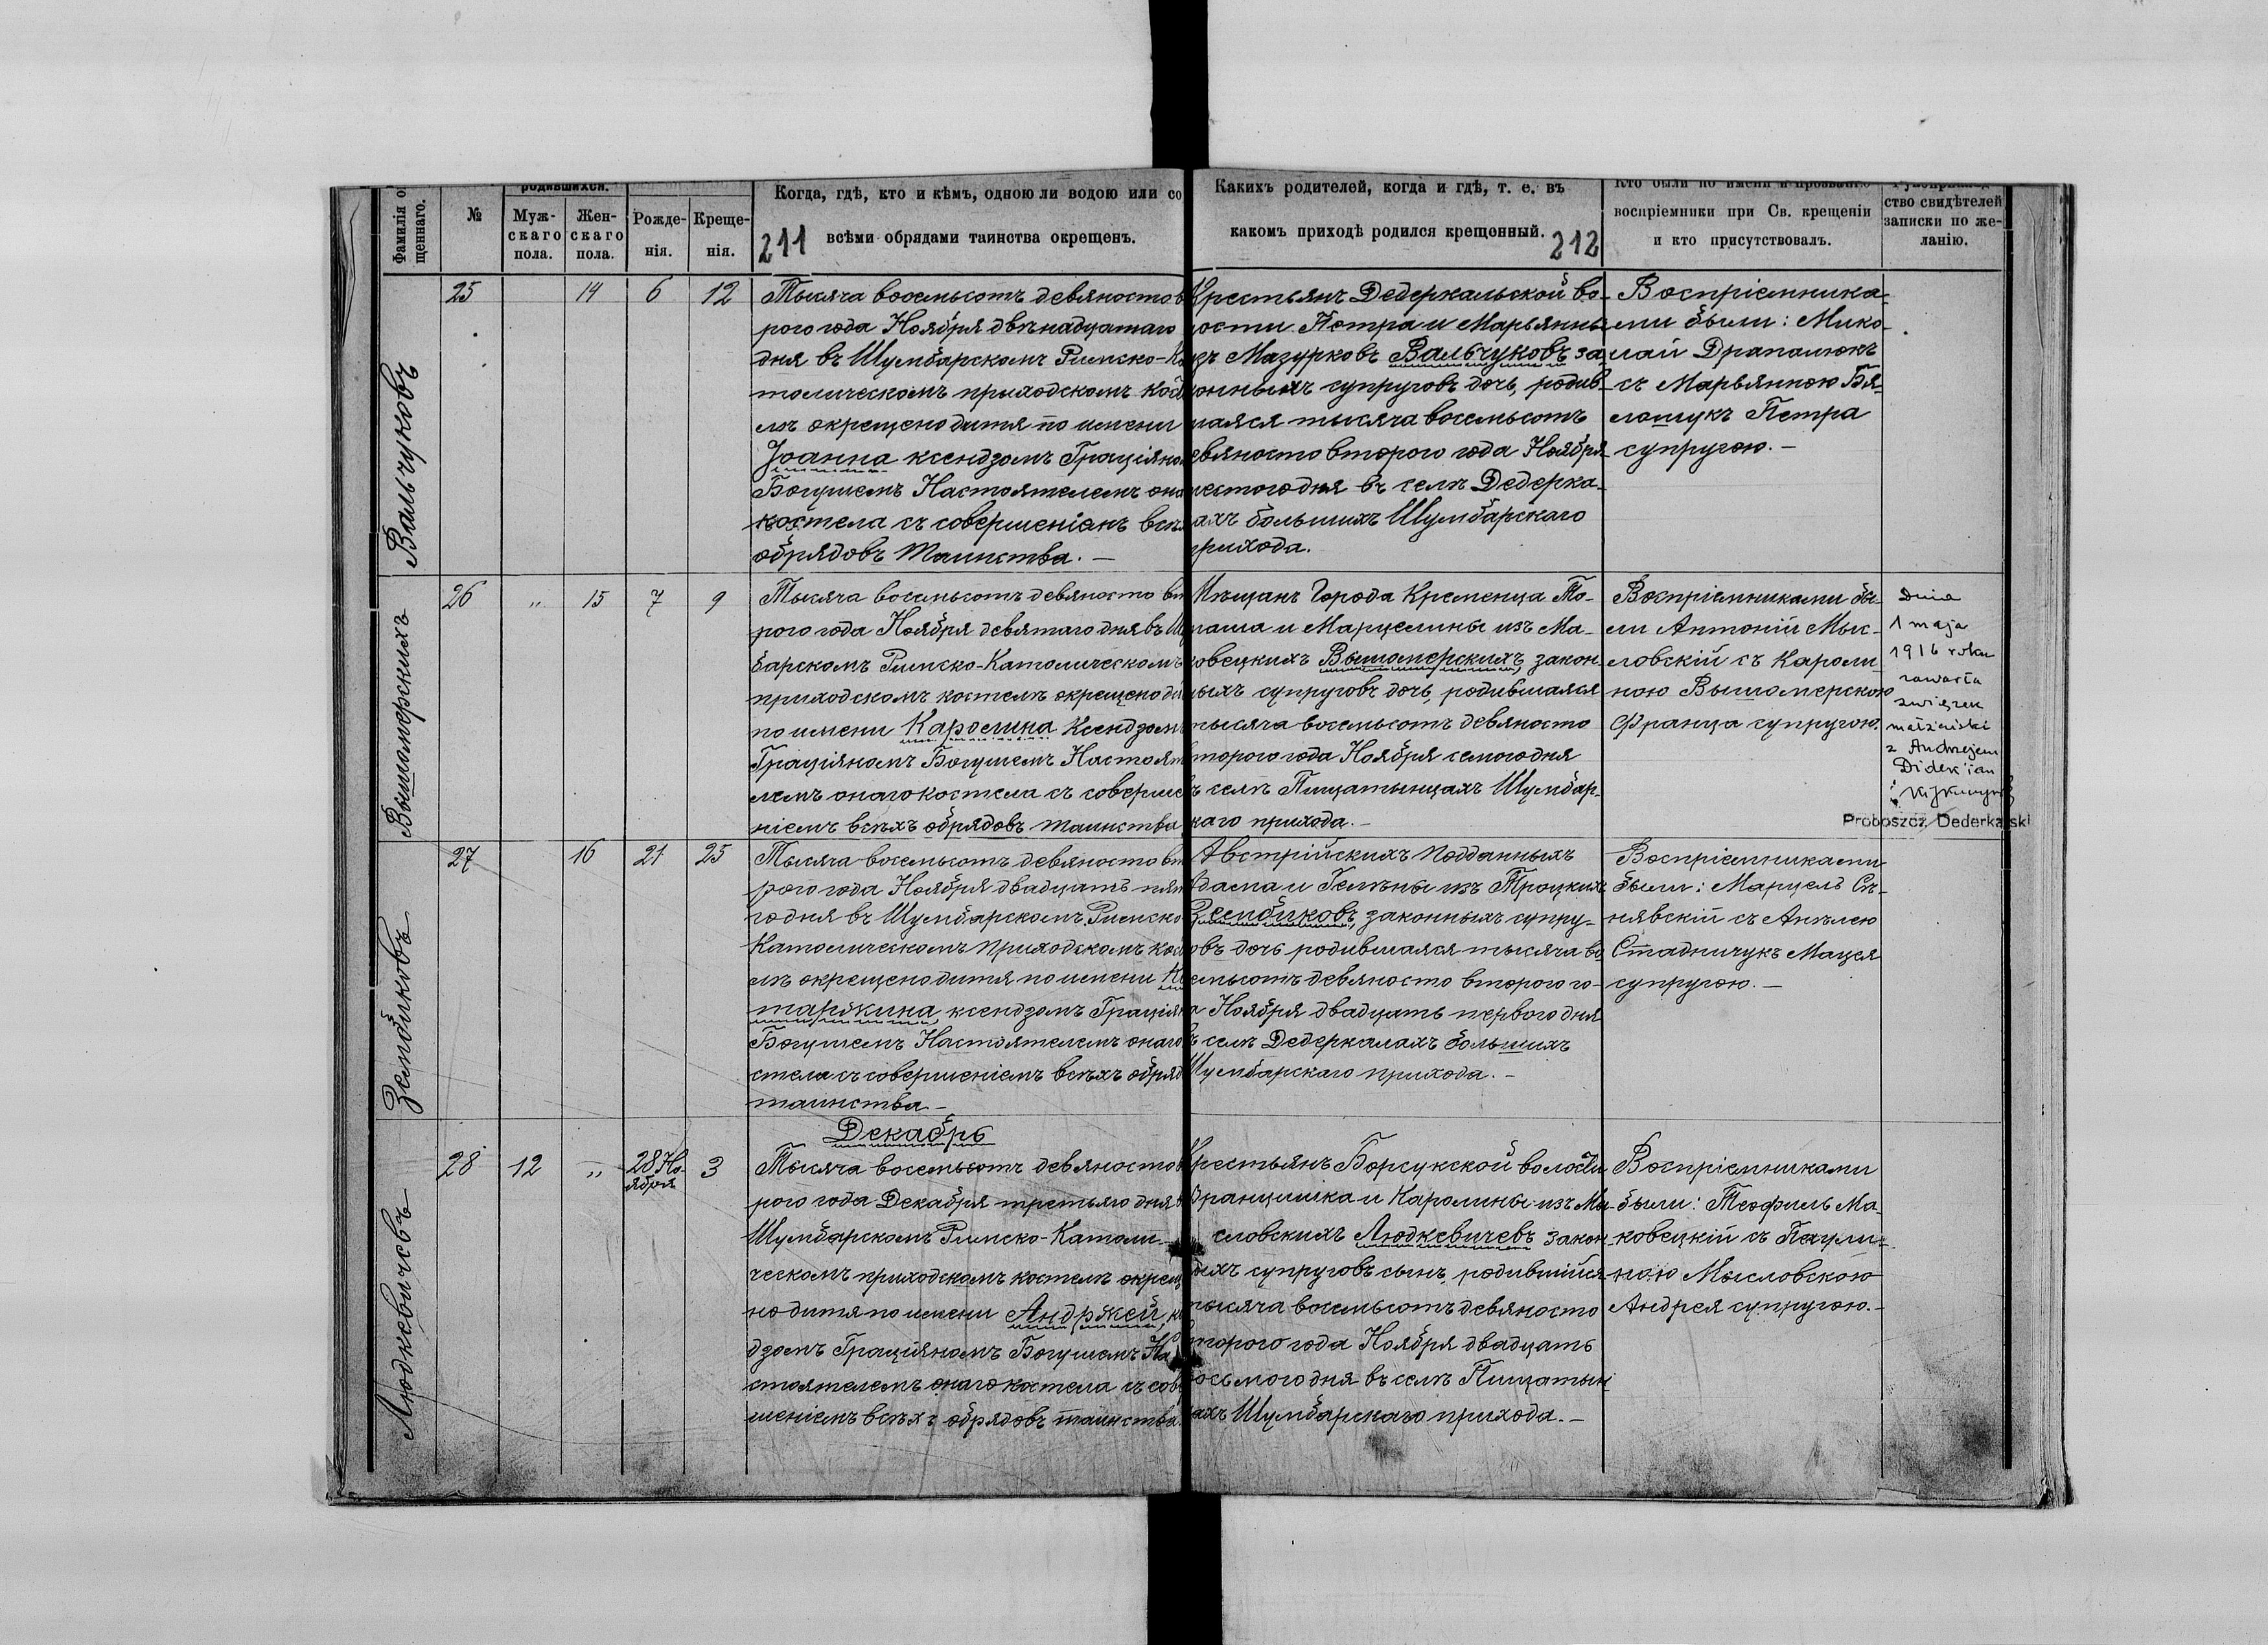 Фамилія о
щеннаго.
№
родившихся.
Муж-
скаго
пола.
Жен-
скаго
пола.
Рожде-
нія.
Креще-
нія.
Когда, гдѣ, кто и кѣмъ, одною ли водою или со
всѣми обрядами таинства окрещенъ.
211
Какихъ родителей, когда и гдѣ, т. е. въ
какомъ приходѣ родился крещенный.
212
Кто были по имени и прозванію
воспріемники при Св. крещеніи
и кто присутствовалъ.
ство свидѣтелей
записки по же-
ланію.
Вальчуковъ
25 14 6 12
Тысяча восемьсотъ девяносто в
рого года Ноября двѣнадцатаго
дня въ Шумбарскомъ Римско-Ка
толическомъ приходскомъ кос
лѣ окрещено дитя по имени
Іоанна ксендзомъ Граціяно
Богушемъ Настоятелемъ она
костела съ совершеніемъ всѣ
обрядовъ Таинства. —
Крестьянъ Дедеркальской во-
ости Петра и Марьянны
изъ Мазурковъ Вальчуковъ за
онныхъ супруговъ дочь, родив-
шаяся тысяча восемьсотъ
евяносто второго года Ноября
шестого дня въ селѣ Дедерка-
ахъ большихъ Шумбарскаго
прихода.
Воспріемника-
ми были: Мико-
лай Драпалюкъ
съ Марьянною Бя-
лошукъ Петра
супругою. —
Вышомерскихъ
26 " 15 7 9
Тысяча восемьсотъ девяносто вт
рого года Ноября девятаго дня въ Шу
барскомъ Римско-Католическомъ
приходскомъ костелѣ окрещено ди
по имени Каролина Ксендзом
Граціяномъ Богушемъ Настоят
лемъ онаго костела съ соверше
ніемъ всѣхъ обрядовъ таинства
Мѣщанъ Города Кременца То-
маша и Марцелины изъ Ма-
ковецкихъ Вышомерскихъ, закон-
ныхъ супруговъ дочь, родившаяся
тысяча восемьсотъ девяносто
торого года Ноября семого дня
въ селѣ Пищатынцахъ Шумбар-
каго прихода. —
Воспріемниками бы-
ли Антоній Мыс-
ловскій съ Кароли-
ною Вышомерскою
Франца супругою.
Dnia
1 maja
1916 roku
zawarła
związek
małżeński
z Andrzejem
Proboszcz Dederkalski
Зембиковъ
27 16 21 25
Тысяча восемьсотъ девяносто вт
рого года Ноября двадцать пят
го дня въ Шумбарскомъ Римско
Католическомъ Приходскомъ кос
лѣ окрещено дитя по имени К
таржина, ксендзомъ Граціян
Богушемъ Настоятелемъ онаго
стела съ совершеніемъ всѣхъ обряд
таинства —
Австрійскихъ Подданныхъ
Адама и Гелѣны изъ Троцкихъ
Зембиковъ, законныхъ супру-
овъ дочь родившаяся тысяча во
емьсотъ девяносто второго го-
а Ноября двадцать первого дня
въ селѣ Дедеркалахъ большихъ
Шумбарскаго прихода. —
Воспріемниками
были: Марцель Сѣ-
нявскій съ Анѣлею
Стадничукъ Мацея
супругою. —
Людкевичевъ
Декабрь
28 12 " 28 Но-
ября 3
Тысяча восемьсотъ девяносто в
рого года Декабря третьяго дня в
Шумбарскомъ Римско-Католи-
ческомъ приходскомъ костелѣ окрещ
но дитя по имени Андржей, к
дзомъ Граціяномъ Богушемъ На
стоятелемъ онаго костела съ сов
шеніемъ всѣхъ обрядовъ таинства
Крестьянъ Борсукской волости
Францишка и Каролины изъ Мы-
словскихъ Людкевичевъ закон-
ныхъ супруговъ сынъ, родившійся
тысяча восемьсотъ девяносто
торого года Ноября двадцать
осьмого дня въ селѣ Пищатын
ахъ Шумбарскаго прихода. —
Воспріемниками
были: Теофиль Ма-
ковецкій съ Паули-
ною Мысловскою
Андрея супругою. —